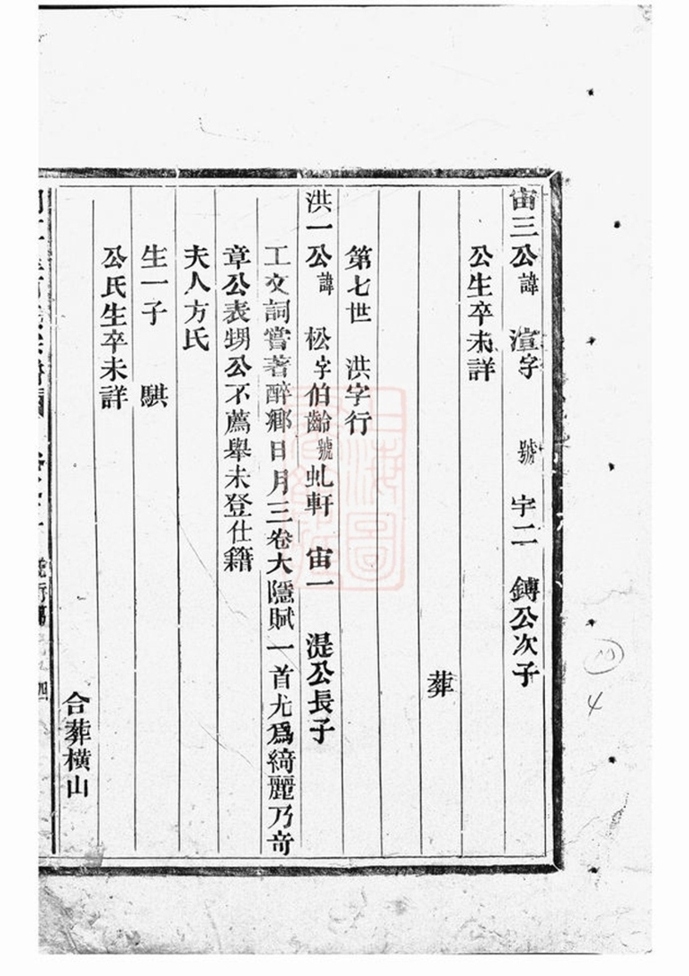 宙三公諱 渲字 號 宇二 鏄公次子
公生卒未詳
葬
第七世 洪字行
洪一公諱 松字伯齡號虬軒 宙一 湜公長子
工文詞嘗著醉鄉日月三卷大隱賦一首尤爲綺麗乃奇
章公表甥公不薦舉未登仕籍
夫人方氏
生一子 騏
公氏生卒未詳
合葬橫山
4